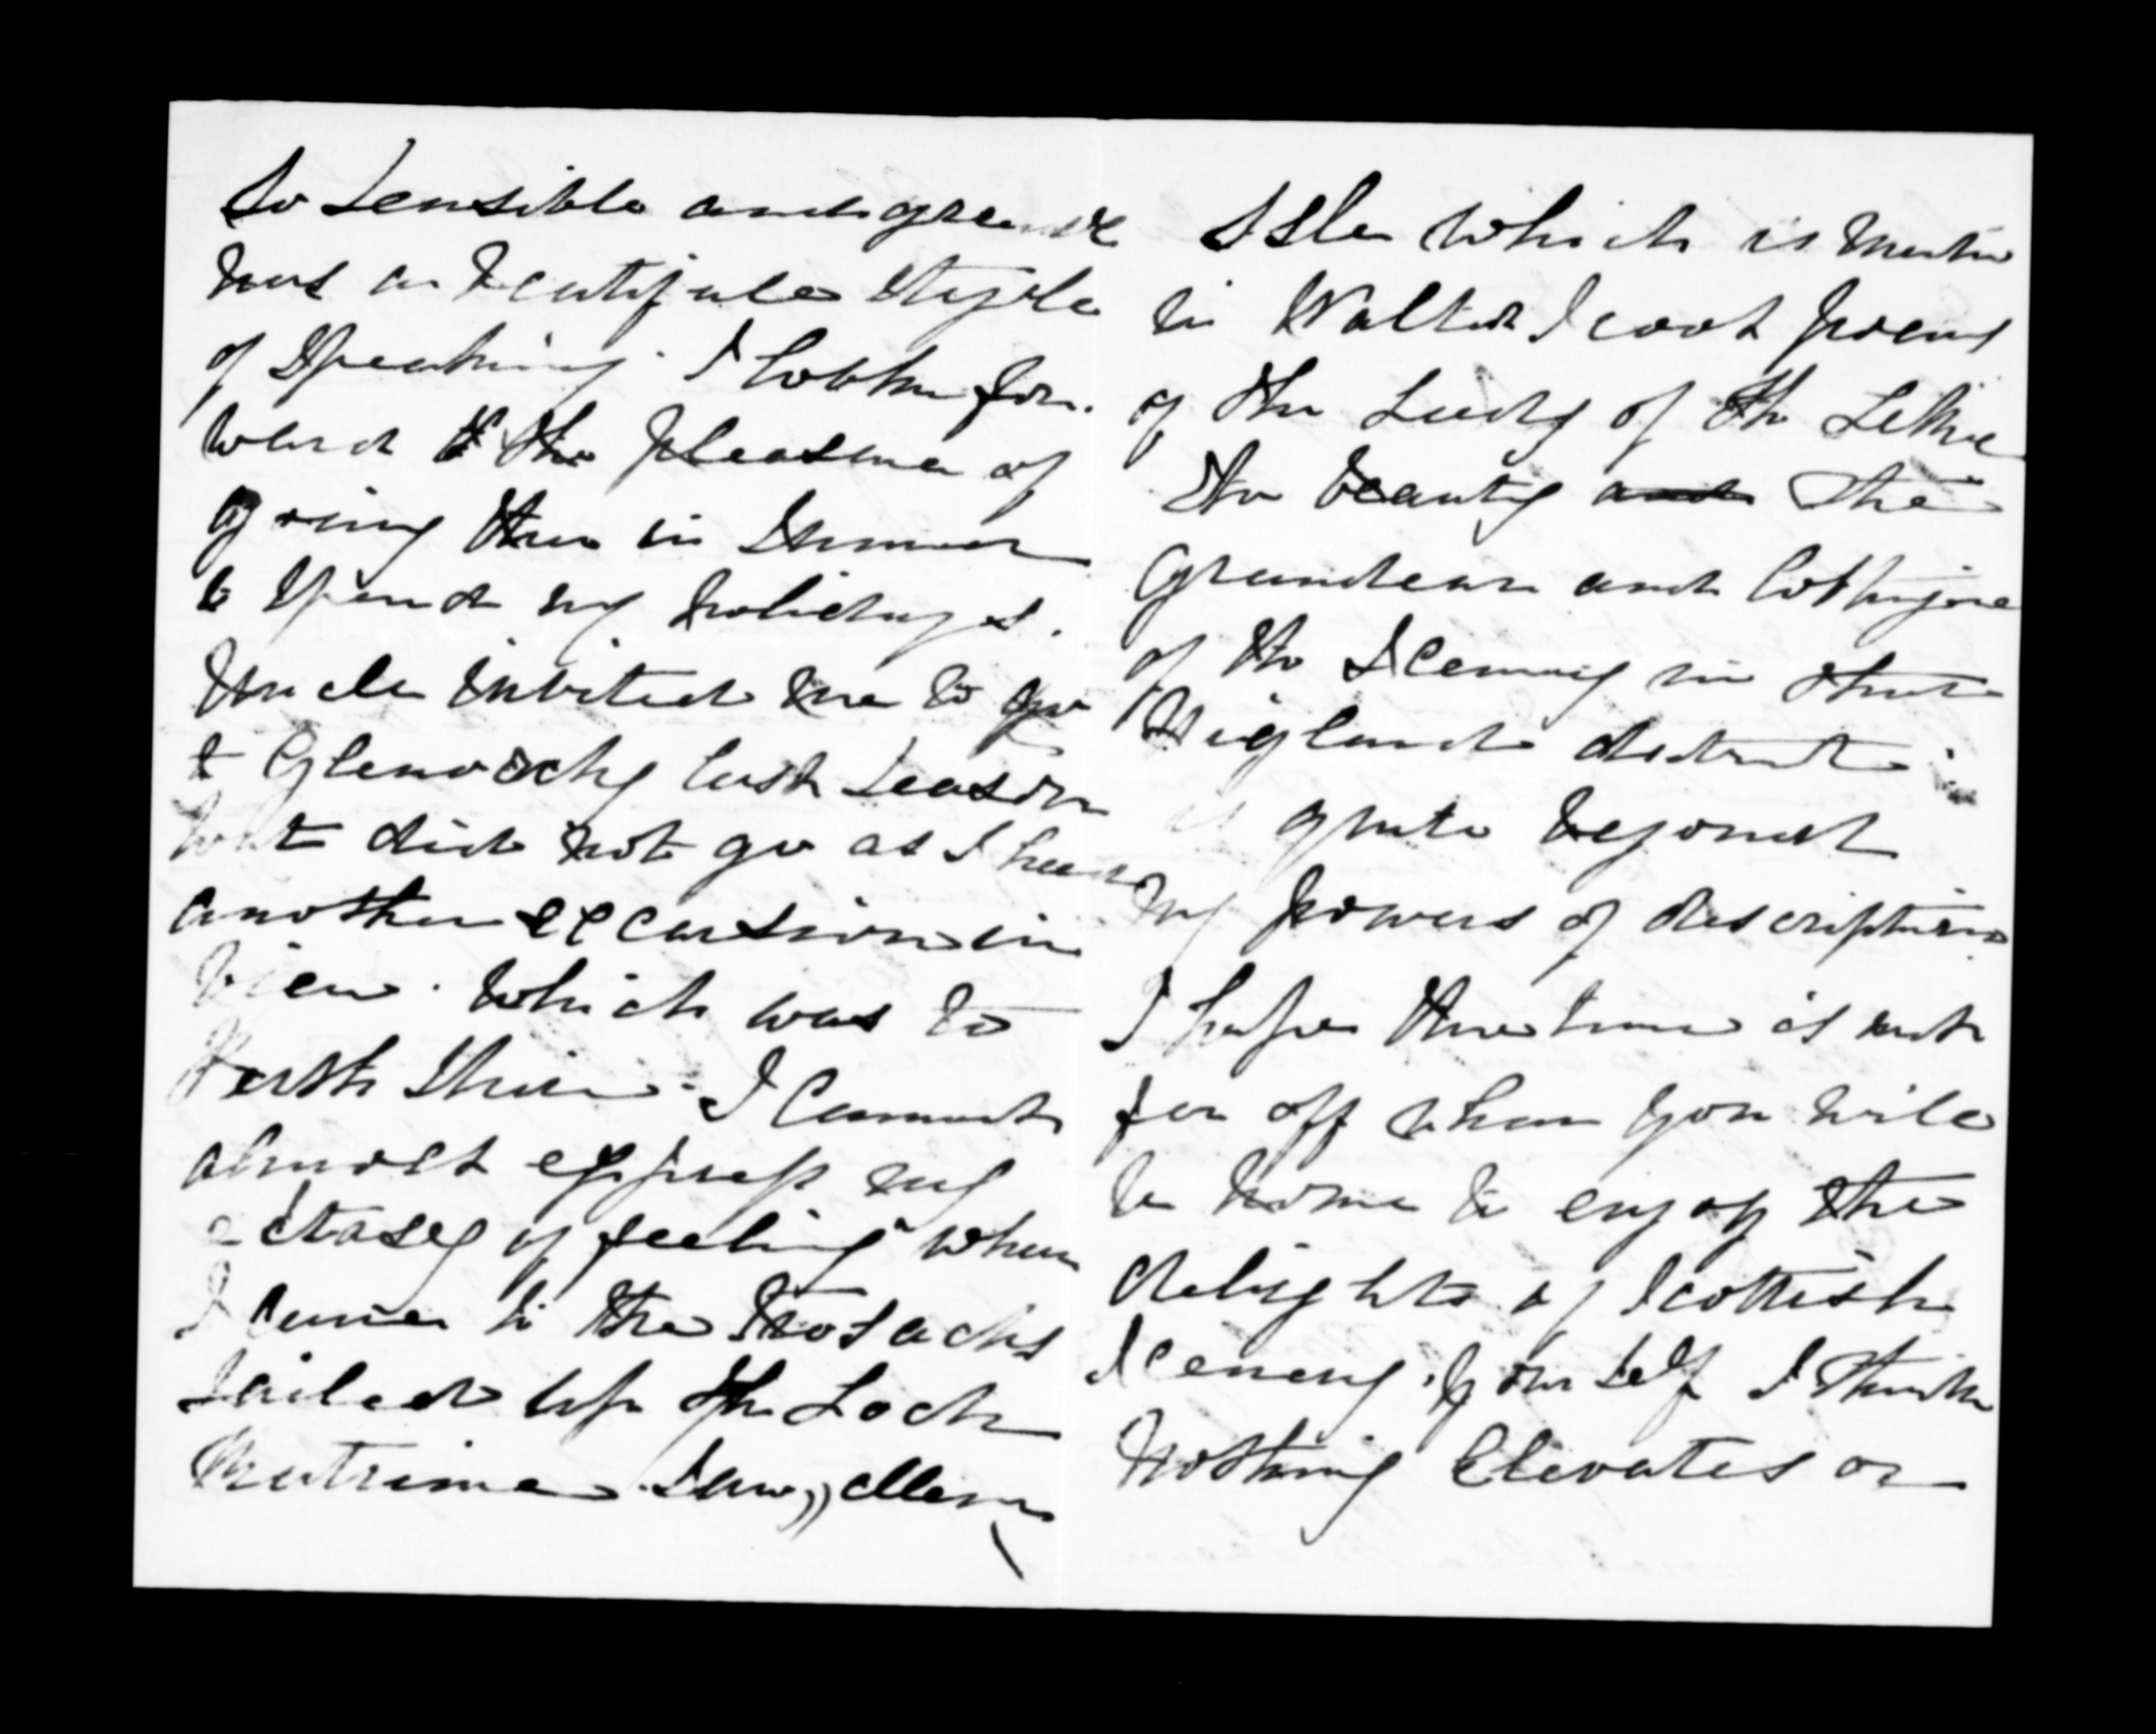 So Sensible and
has a beautifull Style
of Speaking. I look for-
ward to the pleasure of
going there in Summer
to Spend my holidays.
Uncle invited me to go
to Glenorchy last Season
but did not go as I had
another excursion in
View. which was to
Perth Shire. I Cannot
almost express my
ectasey of feeling when
I came to the Trosachs
Sailed up the Loch
Katrine. Saw, Ellens
Isle which is
in Walter Scoot poems
of the Lady of the Lake
the beauty and the
Grandeur and
of the Scenery in that
Higland district
is quite beyond
my powers of description
I hope the time is not
far off when you will
be home to enjoy the
delights of Scottish
Scenery yourself I think
nothing Elevates or